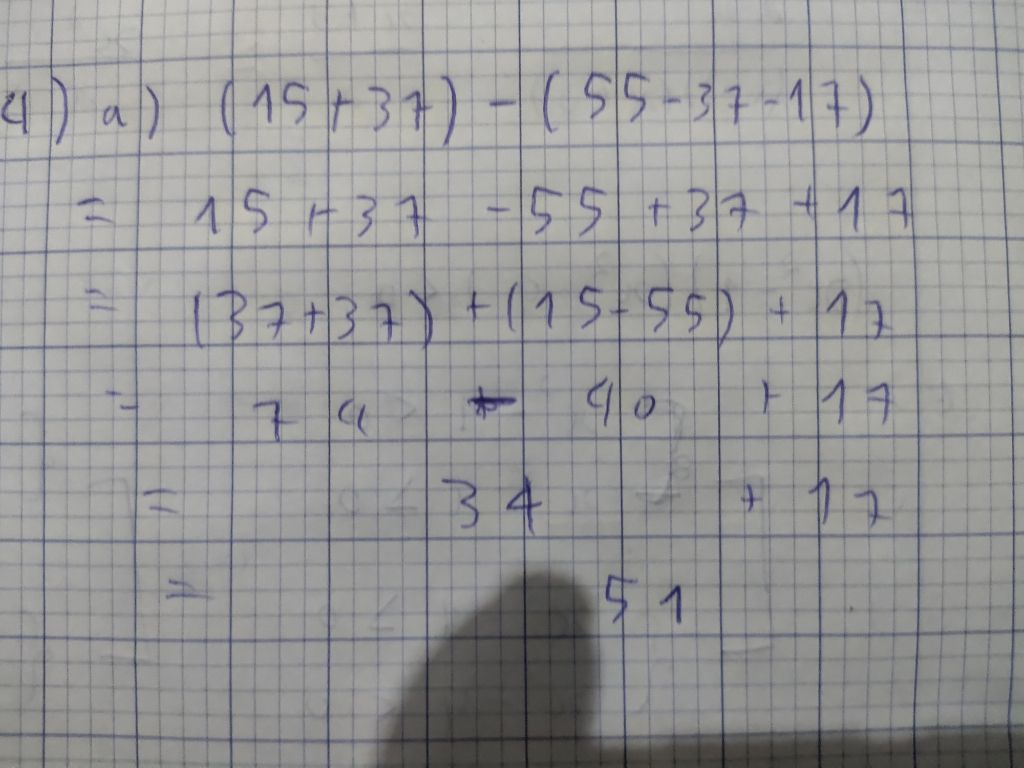 4) a) (15+37) - (55-37-17)
= 15+37 -55 +37 +17
= (37+37) +(15-55) + 17
= 74 - 40 + 17
= 34 + 17
= 51